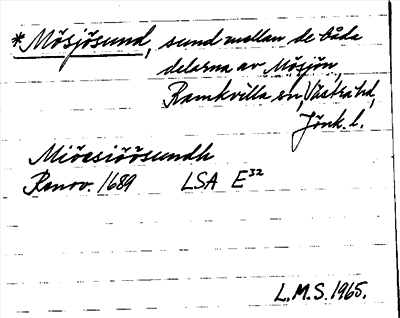 *Mösjösund, sund mellan de båda
delarna av Mösjön,
Ramkvilla sn, Västra hd,
Jönk. l.
Miöesiöösundh
Renov. 1689 LSA E32
L.M.S. 1965.